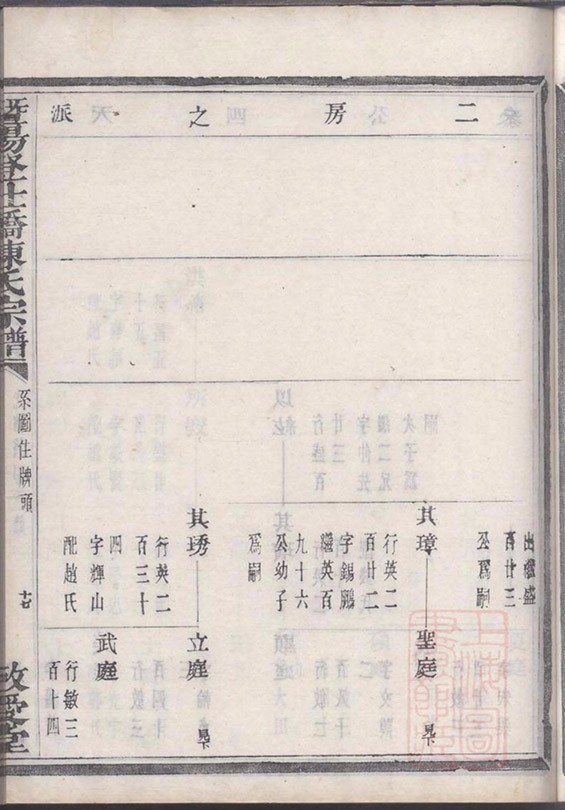 二房之派
出繼盛
百廿三
公爲嗣
其璋
聖庭
行英二
百廿二
字錫鵬
繼英百
九十六
公幼子
爲嗣
其琇
立庭
行英二
百三十
四
字輝山
配趙氏
武庭
行敏三
百十四
暨陽登仕橋陳氏宗譜
系圖住牌頭